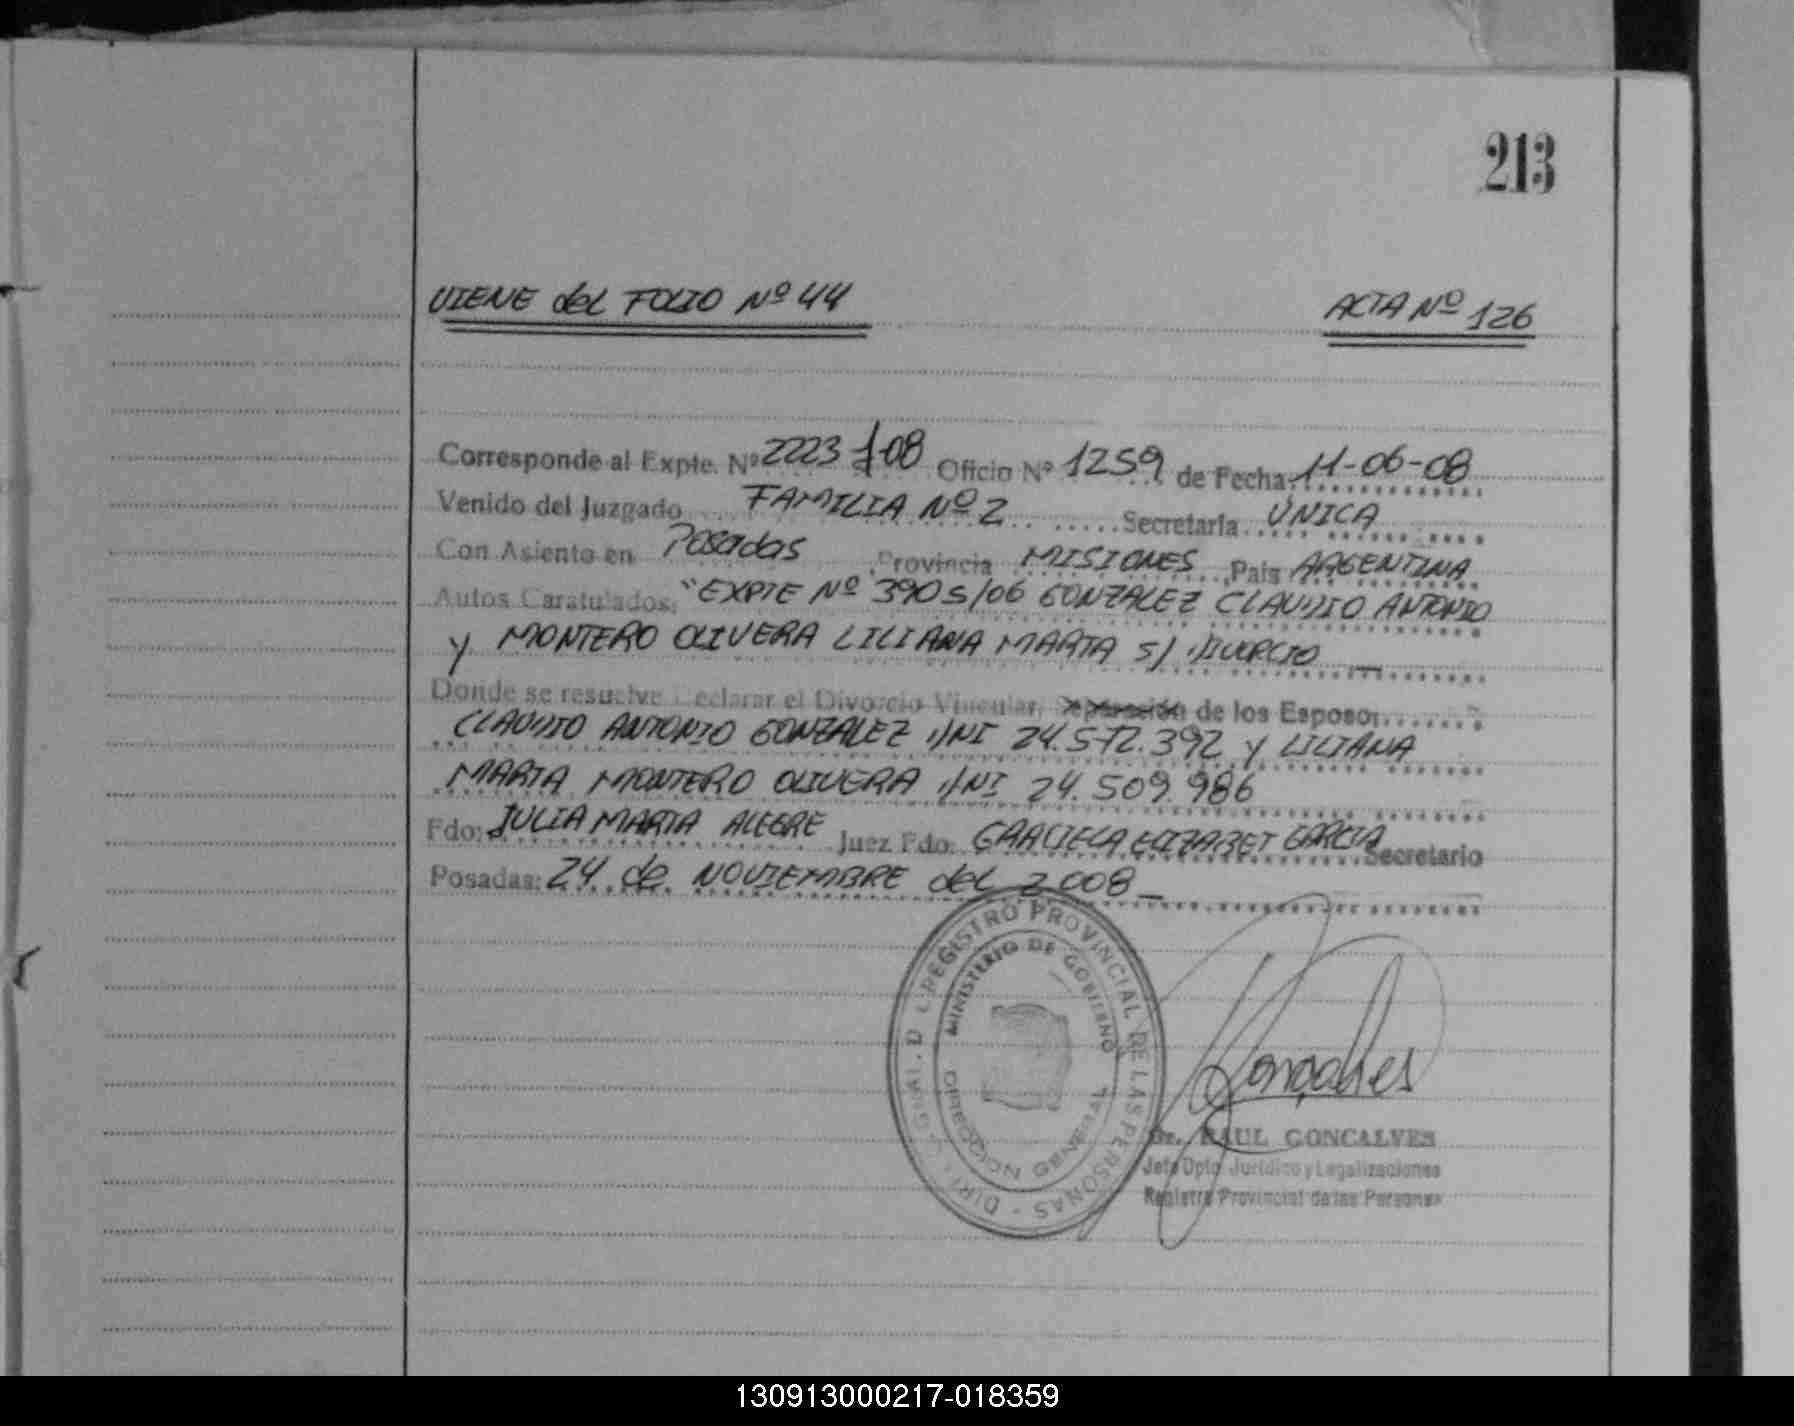 213
VIENE del FOLIO Nº 44 ACTA Nº 126
Corresponde al Expte. Nº 2223 f-08 Oficio Nº 1259 de Fecha: 11-06-08
Venido del Juzgado FAMILIA Nº 2 Secretaría ÚNICA
Con Asiento en Posadas Provincia MISIONES País ARGENTINA
Autos Caratulados, "EXPTE Nº 390 S/06 GONZALEZ CLAUDIO ANTONIO
y MONTERO OLIVERA LILIANA MARTA S/ DIVORCIO
Donde se resuelve Declarar el Divorcio Vincular, Separación de los Esposos
CLAUDIO ANTONIO GONZALEZ DNI 24.572.392 y LILIANA
MARTA MONTERO OLIVERA DNI 24.509.986
Fdo: JULIA MARTA ALEGRE Juez Fdo: GRACIELA ELIZABET GARCIA Secretario
Posadas: 24 de NOVIEMBRE del 2008
REGISTRO PROVINCIAL DE LAS PERSONAS
MINISTERIO DE GOBIERNO
DIRECCION GENERAL
Goncalves
Dr. RAUL GONCALVES
Jefe Dpto. Jurídico y Legalizaciones
Registro Provincial de las Personas
130913000217-018359